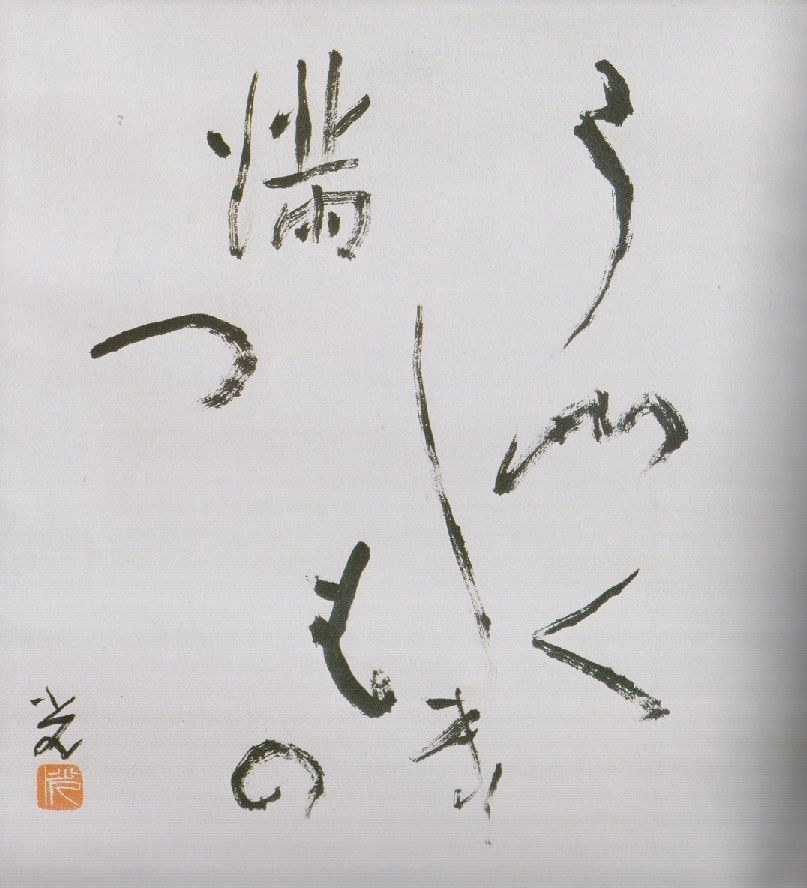 うつく
しき
もの
満つ
光